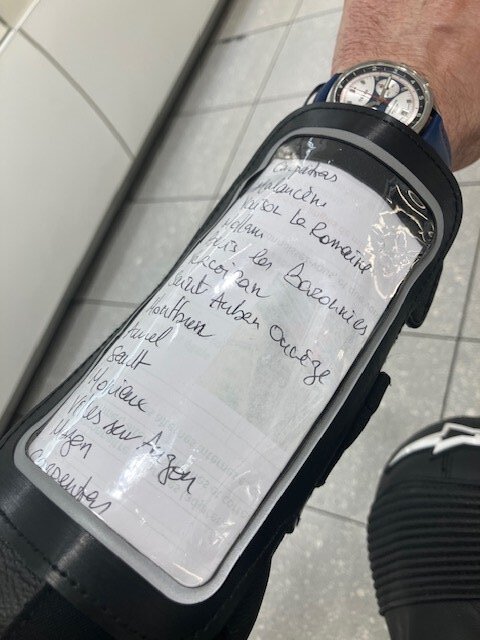 Carpentras
Malaucène
Vaison La Romaine
Mollans
Buis les Baronnies
Saint Auban Ouvèze
Montbrun
Aurel
Sault
Monieux
Villes sur Auzon
Carpentras